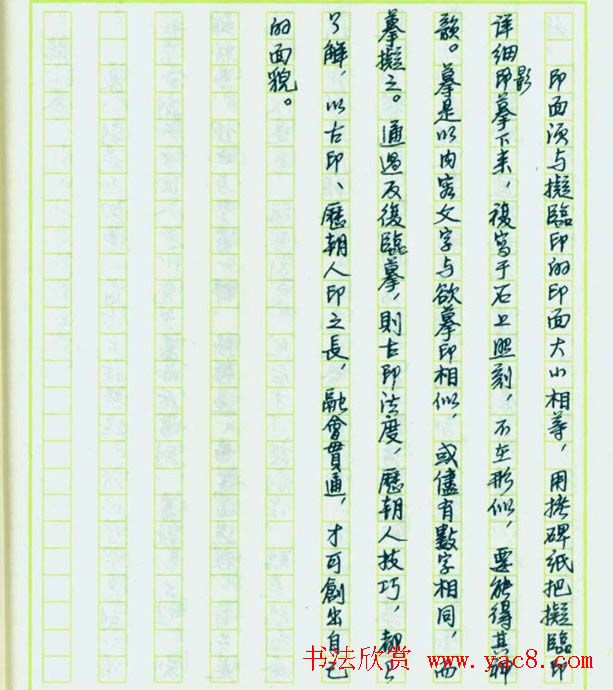 印面须与擬臨印的印面大小相等，用拷碑纸把擬臨印
详细影印摹下来，複寫于石上照刻，不在形似，要能得其神
韵。摹是以内容文字与欲摹印相似，或儘有數字相同，而
摹擬之。通過反復臨摹，則古印法度，歷朝人技巧，都
了解，以古印、歷朝人印之長，融會貫通，才可創出自己
的面貌。
书法欣赏 www.yac8.com